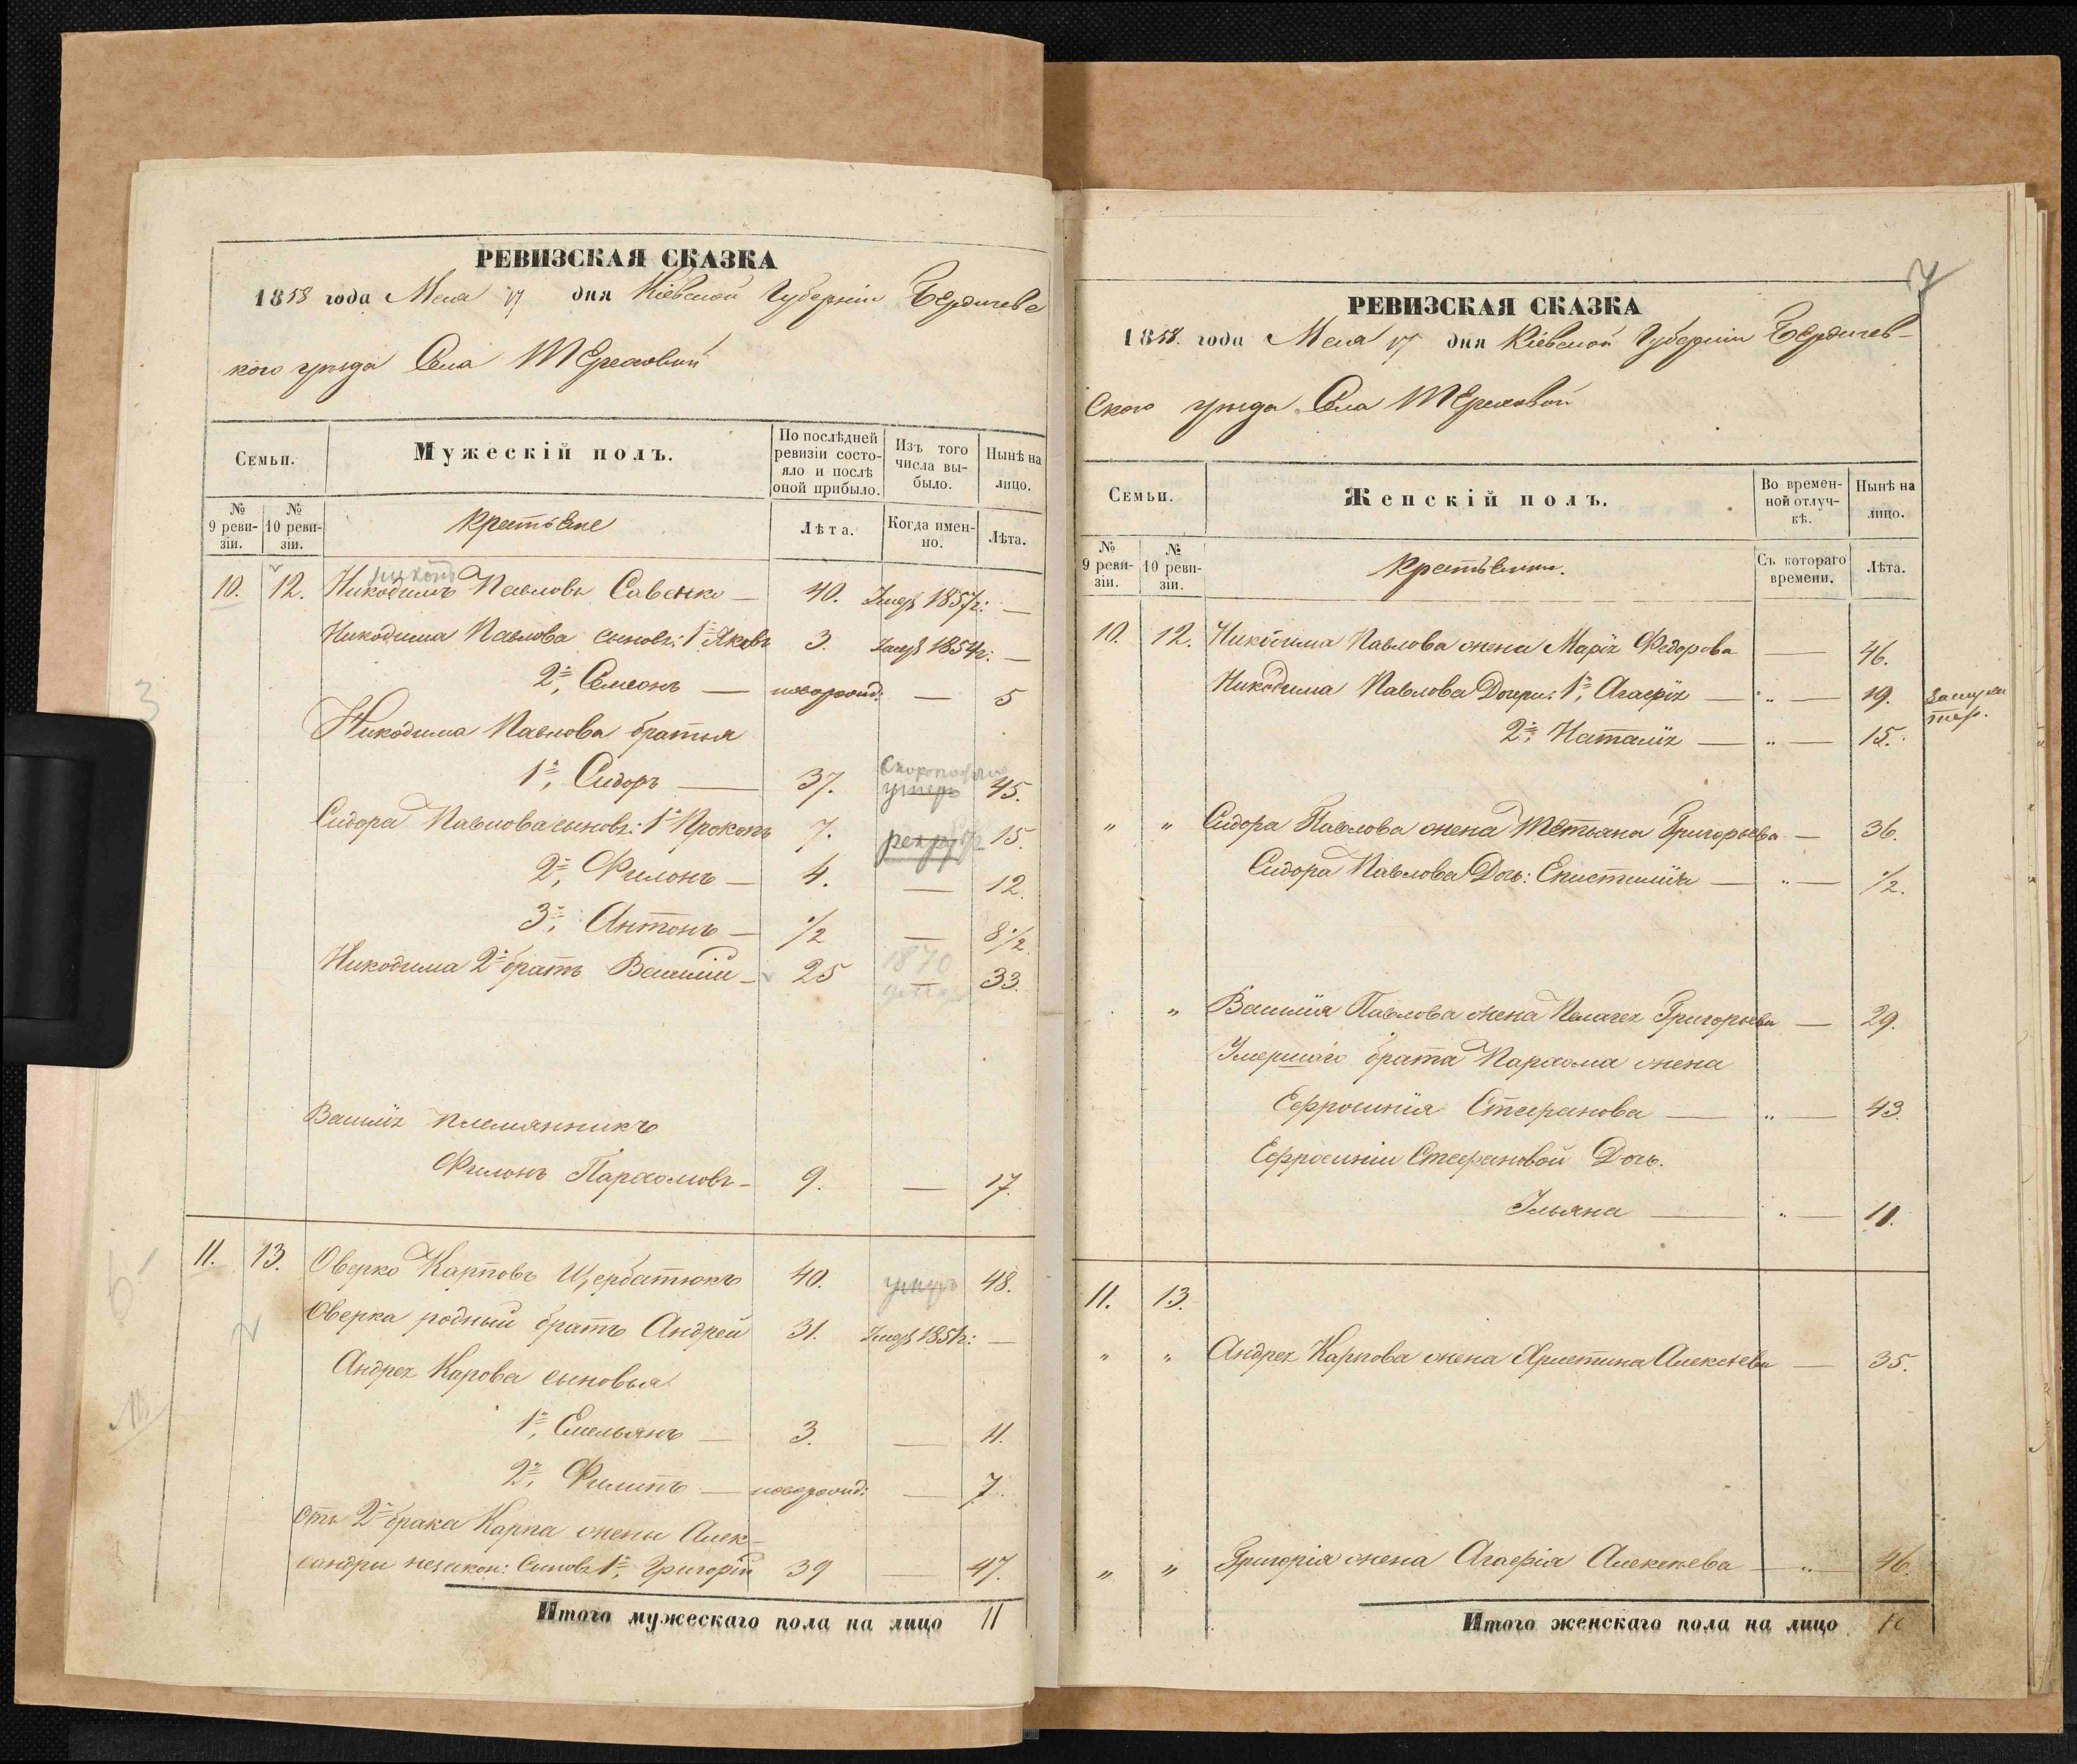 РЕВИЗСКАЯ СКАЗКА
1858 года Мая 17 дня Кіевской Губерніи Бердичевс
кого уѣзда Села Терехової
Семьи.
Мужескій полъ.
По послѣдней ревизіи состояло и послѣ оной прибыло.
Изъ того числа выбыло.
Нынѣ на лицо.
№ 9 ревизіи.
№ 10 ревизіи.
Крестьяне
Лѣта.
Когда именно.
Лѣта.
10. 12. Никодимъ Павловъ Савенко — 40. Умеръ 1857г: —
Никодима Павлова сыновъ: 1й Яковъ 3. Умеръ 1854г: —
2й, Семеонъ — новорожд: — 5
Никодима Павлова братья
1й, Сидоръ — 37. умеръ 45.
Сидора Павлова сыновъ: 1й Прокопъ 7. рекру 15.
2й, Филонъ — 4. — 12.
3й, Антонъ — 1/2 — 8 1/2
Никодима 2й братъ Василій — 25 1870 — 33.
Василія племянникъ
Филонъ Пархомовъ — 9. — 17.
11. 13. Оверко Карповъ Щербатюкъ 40. 48.
Оверка родный братъ Андрей 31. Умеръ 1851г: —
Андрея Карова сыновья
1й, Емельянъ — 3. — 11.
2й, Филипъ — новорожд: — 7.
Отъ 2й брака Карпа жены Алек-
сандры незакон: Сыновъ 1й, Григорій 39 — 47.
Итого мужескаго пола на лицо 11
РЕВИЗСКАЯ СКАЗКА
1858. года Мая 17 дня Кіевской Губерніи Бердичев-
Ского уѣзда Села Терехової
Семьи.
Женскій полъ.
Во временной отлучкѣ.
Нынѣ на лицо.
№ 9 ревизіи.
№ 10 ревизіи.
Крестьянки.
Съ котораго времени.
Лѣта.
10. 12. Никодима Павлова жена Марія Федорова — 46.
Никодима Павлова Дочери: 1я, Агафія — „ — 19.
2я, Наталія — „ — 15.
„ „ Сидора Павлова жена Тетьяна Григорьева — 36.
Сидора Павлова Дочь: Епистимія — „ — 1/2.
„ Василія Павлова жена Пелагея Григорьева — 29.
Умершаго брата Пархома жена
Ефросинія Стефанова — „ — 43.
Ефросиніи Стефановой Дочь.
Ульяна — „ — 11.
11. 13.
„ „ Андрея Карпова жена Христина Алексѣева — 35.
„ „ Григорія жена Агафія Алексѣева — „ — 46.
Итого женскаго пола на лицо 10